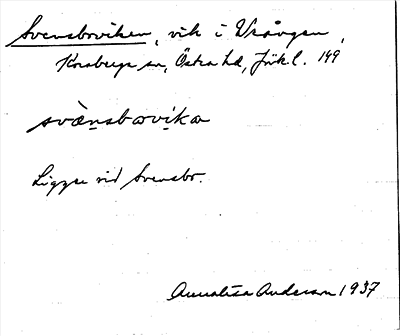 Svensboviken, vik i Vrången,
Korsberga sn, Östra hd, Jönk. l. 149
svænsbovika
Ligger vid Svensbo.
Annalisa Anderson 1937